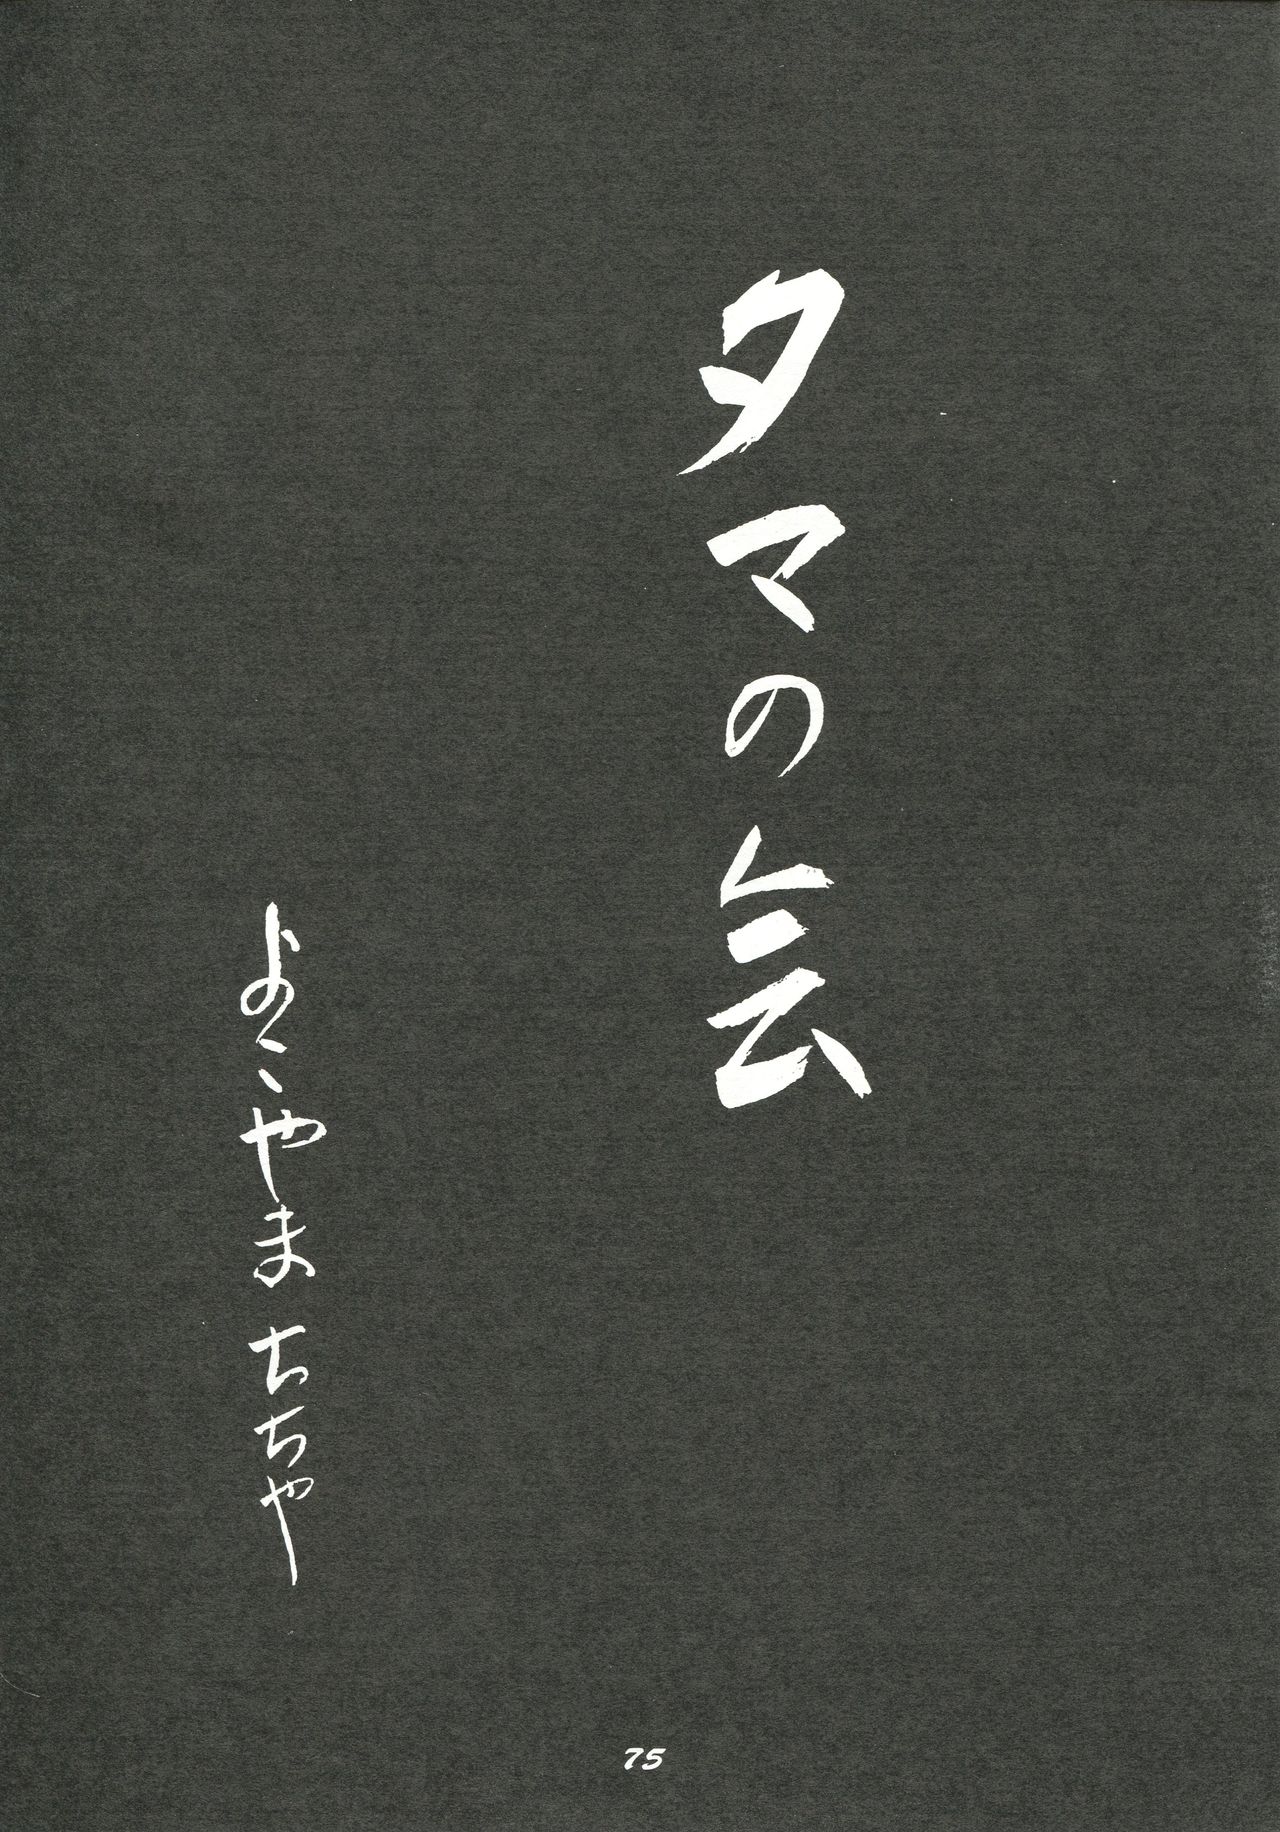 タマの会
よこやま ちちゃ
75